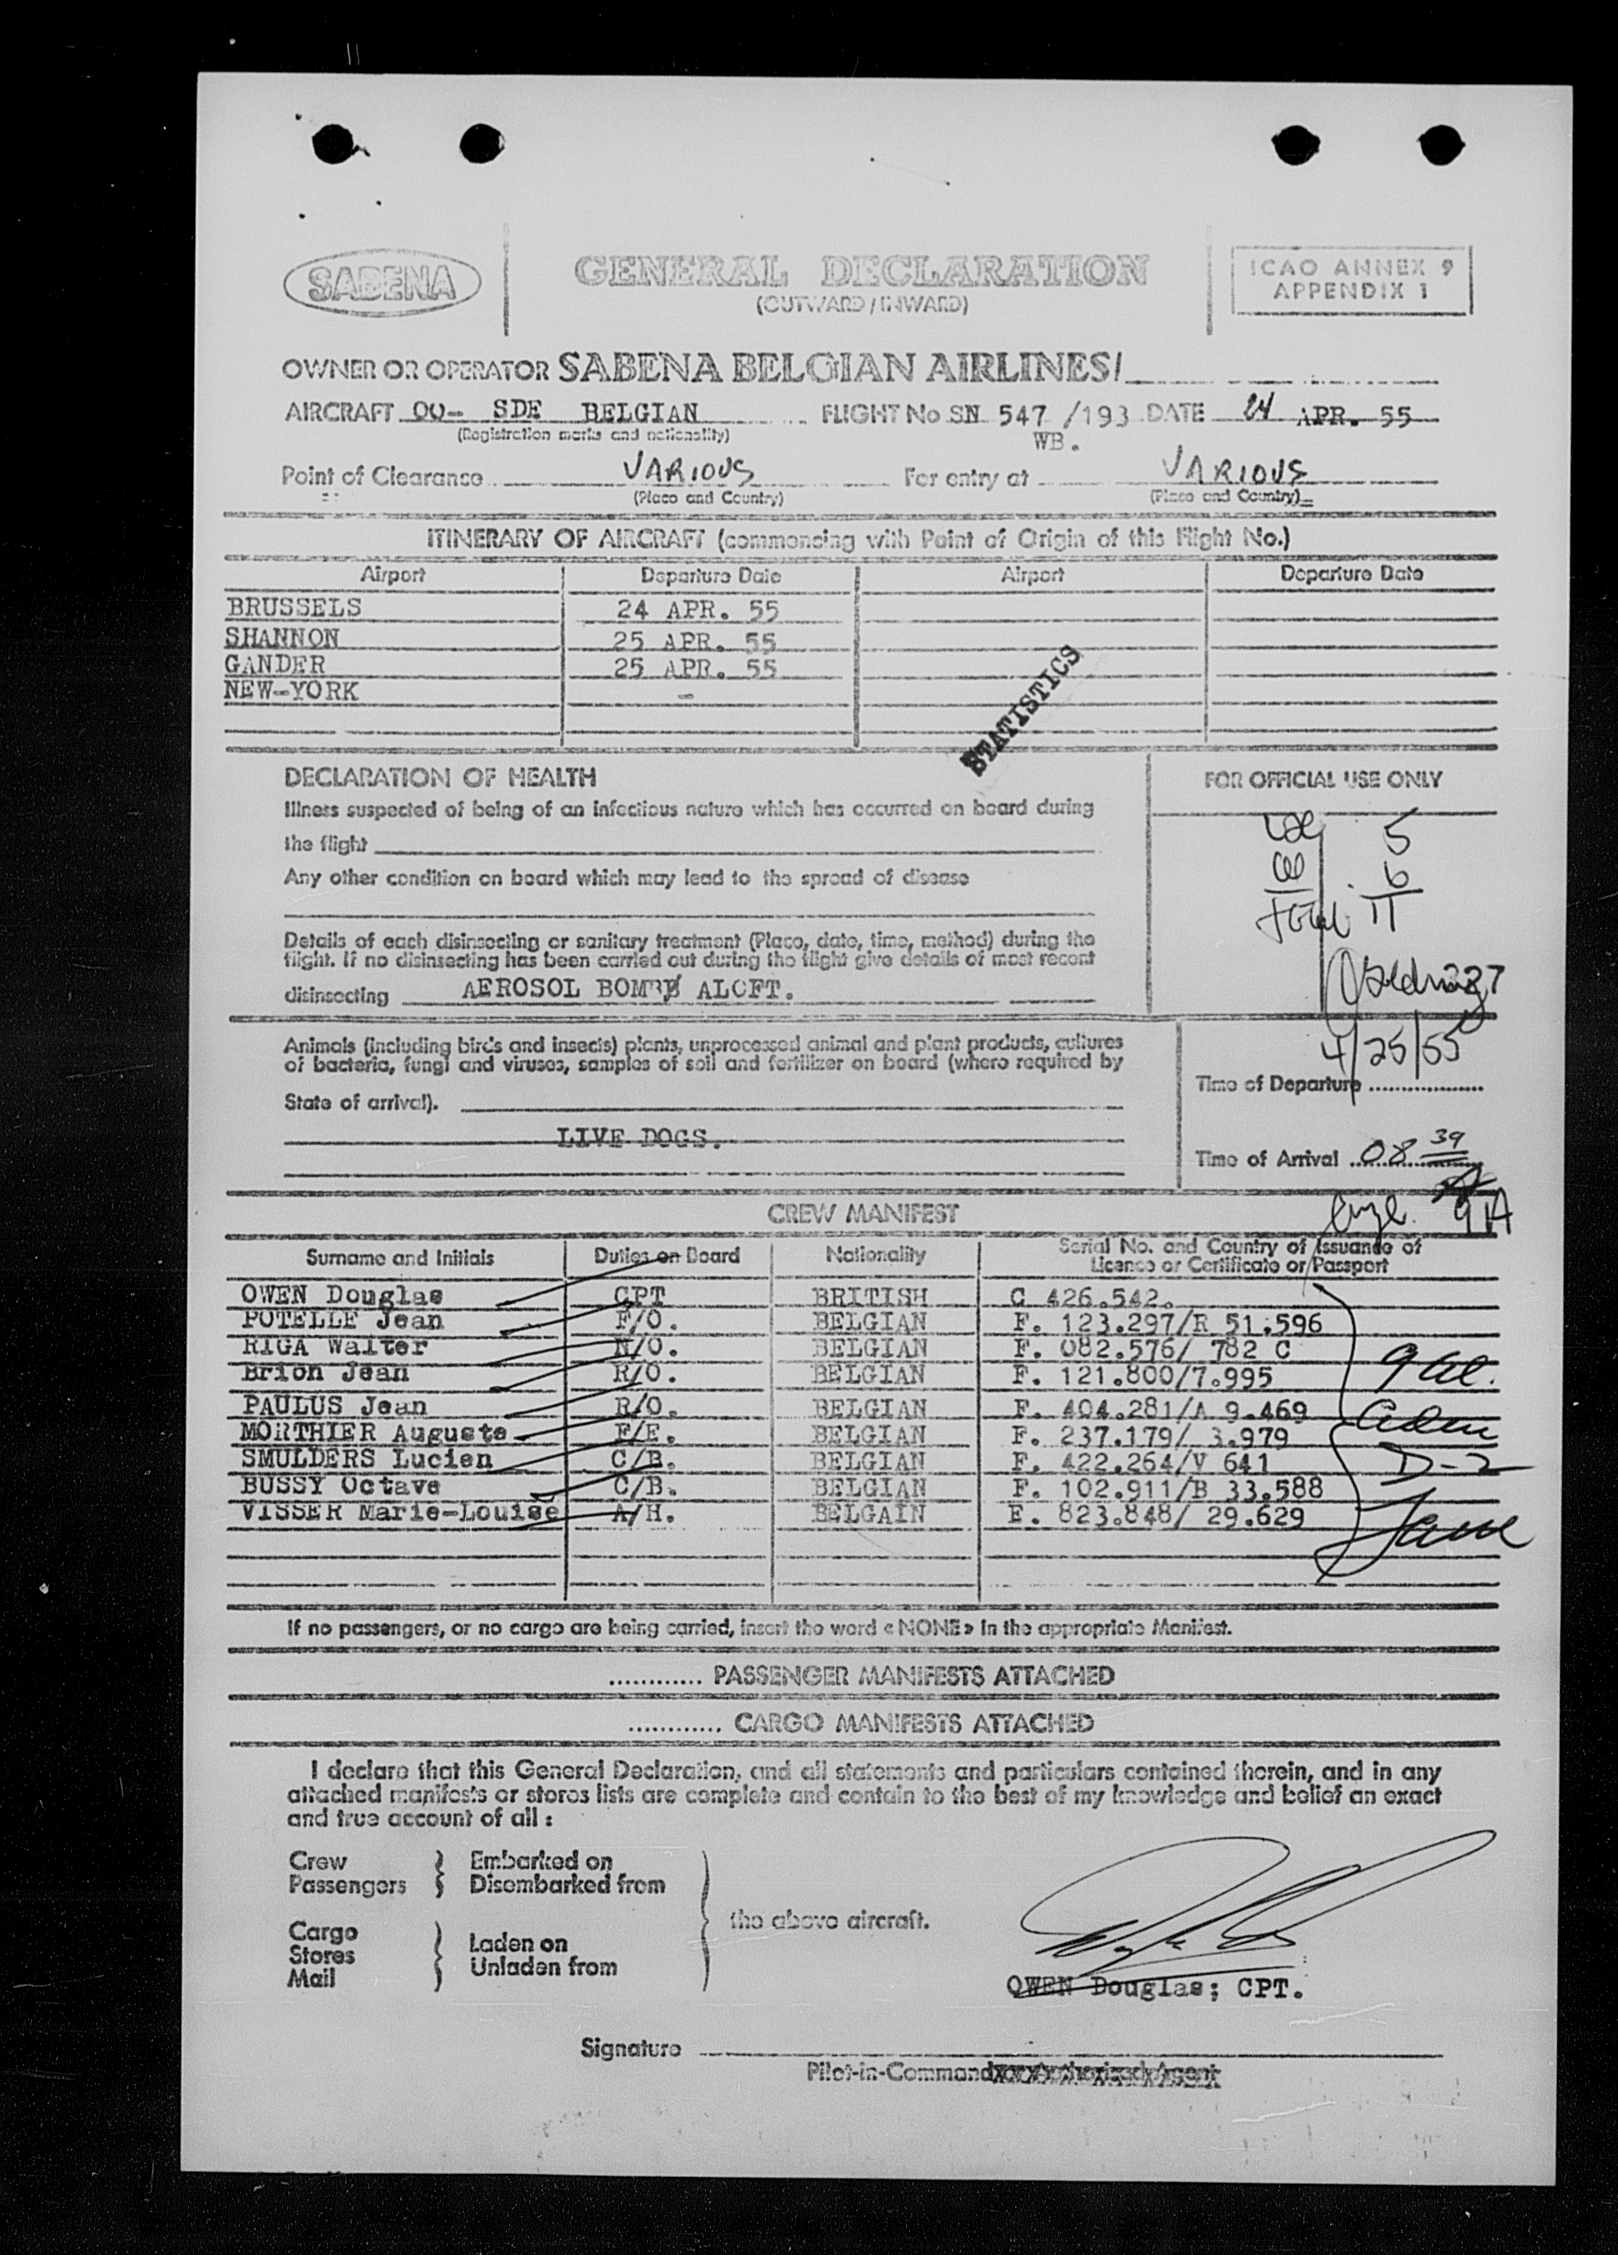 SABENA
GENERAL DECLARATION
(OUTWARD/INWARD)
ICAO ANNEX 9
APPENDIX 1
OWNER OR OPERATOR SABENA BELGIAN AIRLINES/
AIRCRAFT OO- SDE BELGIAN FLIGHT No SN 547 /193 DATE 24 APR. 55
(Registration marks and nationality) WB.
Point of Clearance VARIOUS For entry at VARIOUS
(Place and Country) (Place and Country)
ITINERARY OF AIRCRAFT (commencing with Point of Origin of this Flight No.)
Airport Departure Date Airport Departure Date
BRUSSELS 24 APR. 55
SHANNON 25 APR. 55
GANDER 25 APR. 55
NEW-YORK -
STATISTICS
DECLARATION OF HEALTH
Illness suspected of being of an infectious nature which has occurred on board during
the flight
Any other condition on board which may lead to the spread of disease
Details of each disinsecting or sanitary treatment (Place, date, time, method) during the
flight. If no disinsecting has been carried out during the flight give details of most recent
disinsecting AEROSOL BOMB ALOFT.
FOR OFFICIAL USE ONLY
5
6
Total 11
4/25/55
Animals (including birds and insects) plants, unprocessed animal and plant products, cultures
of bacteria, fungi and viruses, samples of soil and fertilizer on board (where required by
State of arrival).
LIVE DOGS.
Time of Departure
Time of Arrival 08 39
CREW MANIFEST
Surname and Initials Duties on Board Nationality Serial No. and Country of Issuance of
Licence or Certificate or Passport
OWEN Douglas CPT BRITISH C 426.542.
POTELLE Jean F/O. BELGIAN F. 123.297/R 51.596
RIGA Walter N/O. BELGIAN F. 082.576/ 782 C
Brion Jean R/O. BELGIAN F. 121.800/7.995
PAULUS Jean R/O. BELGIAN F. 404.281/A 9.469
MORTHIER Auguste F/E. BELGIAN F. 237.179/ 3.979
SMULDERS Lucien C/B. BELGIAN F. 422.264/V 641
BUSSY Octave C/B. BELGIAN F. 102.911/B 33.588
VISSER Marie-Louise A/H. BELGAIN E. 823.848/ 29.629
D-2
If no passengers, or no cargo are being carried, insert the word «NONE» in the appropriate Manifest.
............ PASSENGER MANIFESTS ATTACHED
............ CARGO MANIFESTS ATTACHED
I declare that this General Declaration, and all statements and particulars contained therein, and in any
attached manifests or stores lists are complete and contain to the best of my knowledge and belief an exact
and true account of all :
Crew Embarked on
Passengers Disembarked from
the above aircraft.
Cargo
Stores Laden on
Mail Unladen from
OWEN Douglas; CPT.
Signature
Pilot-in-Command